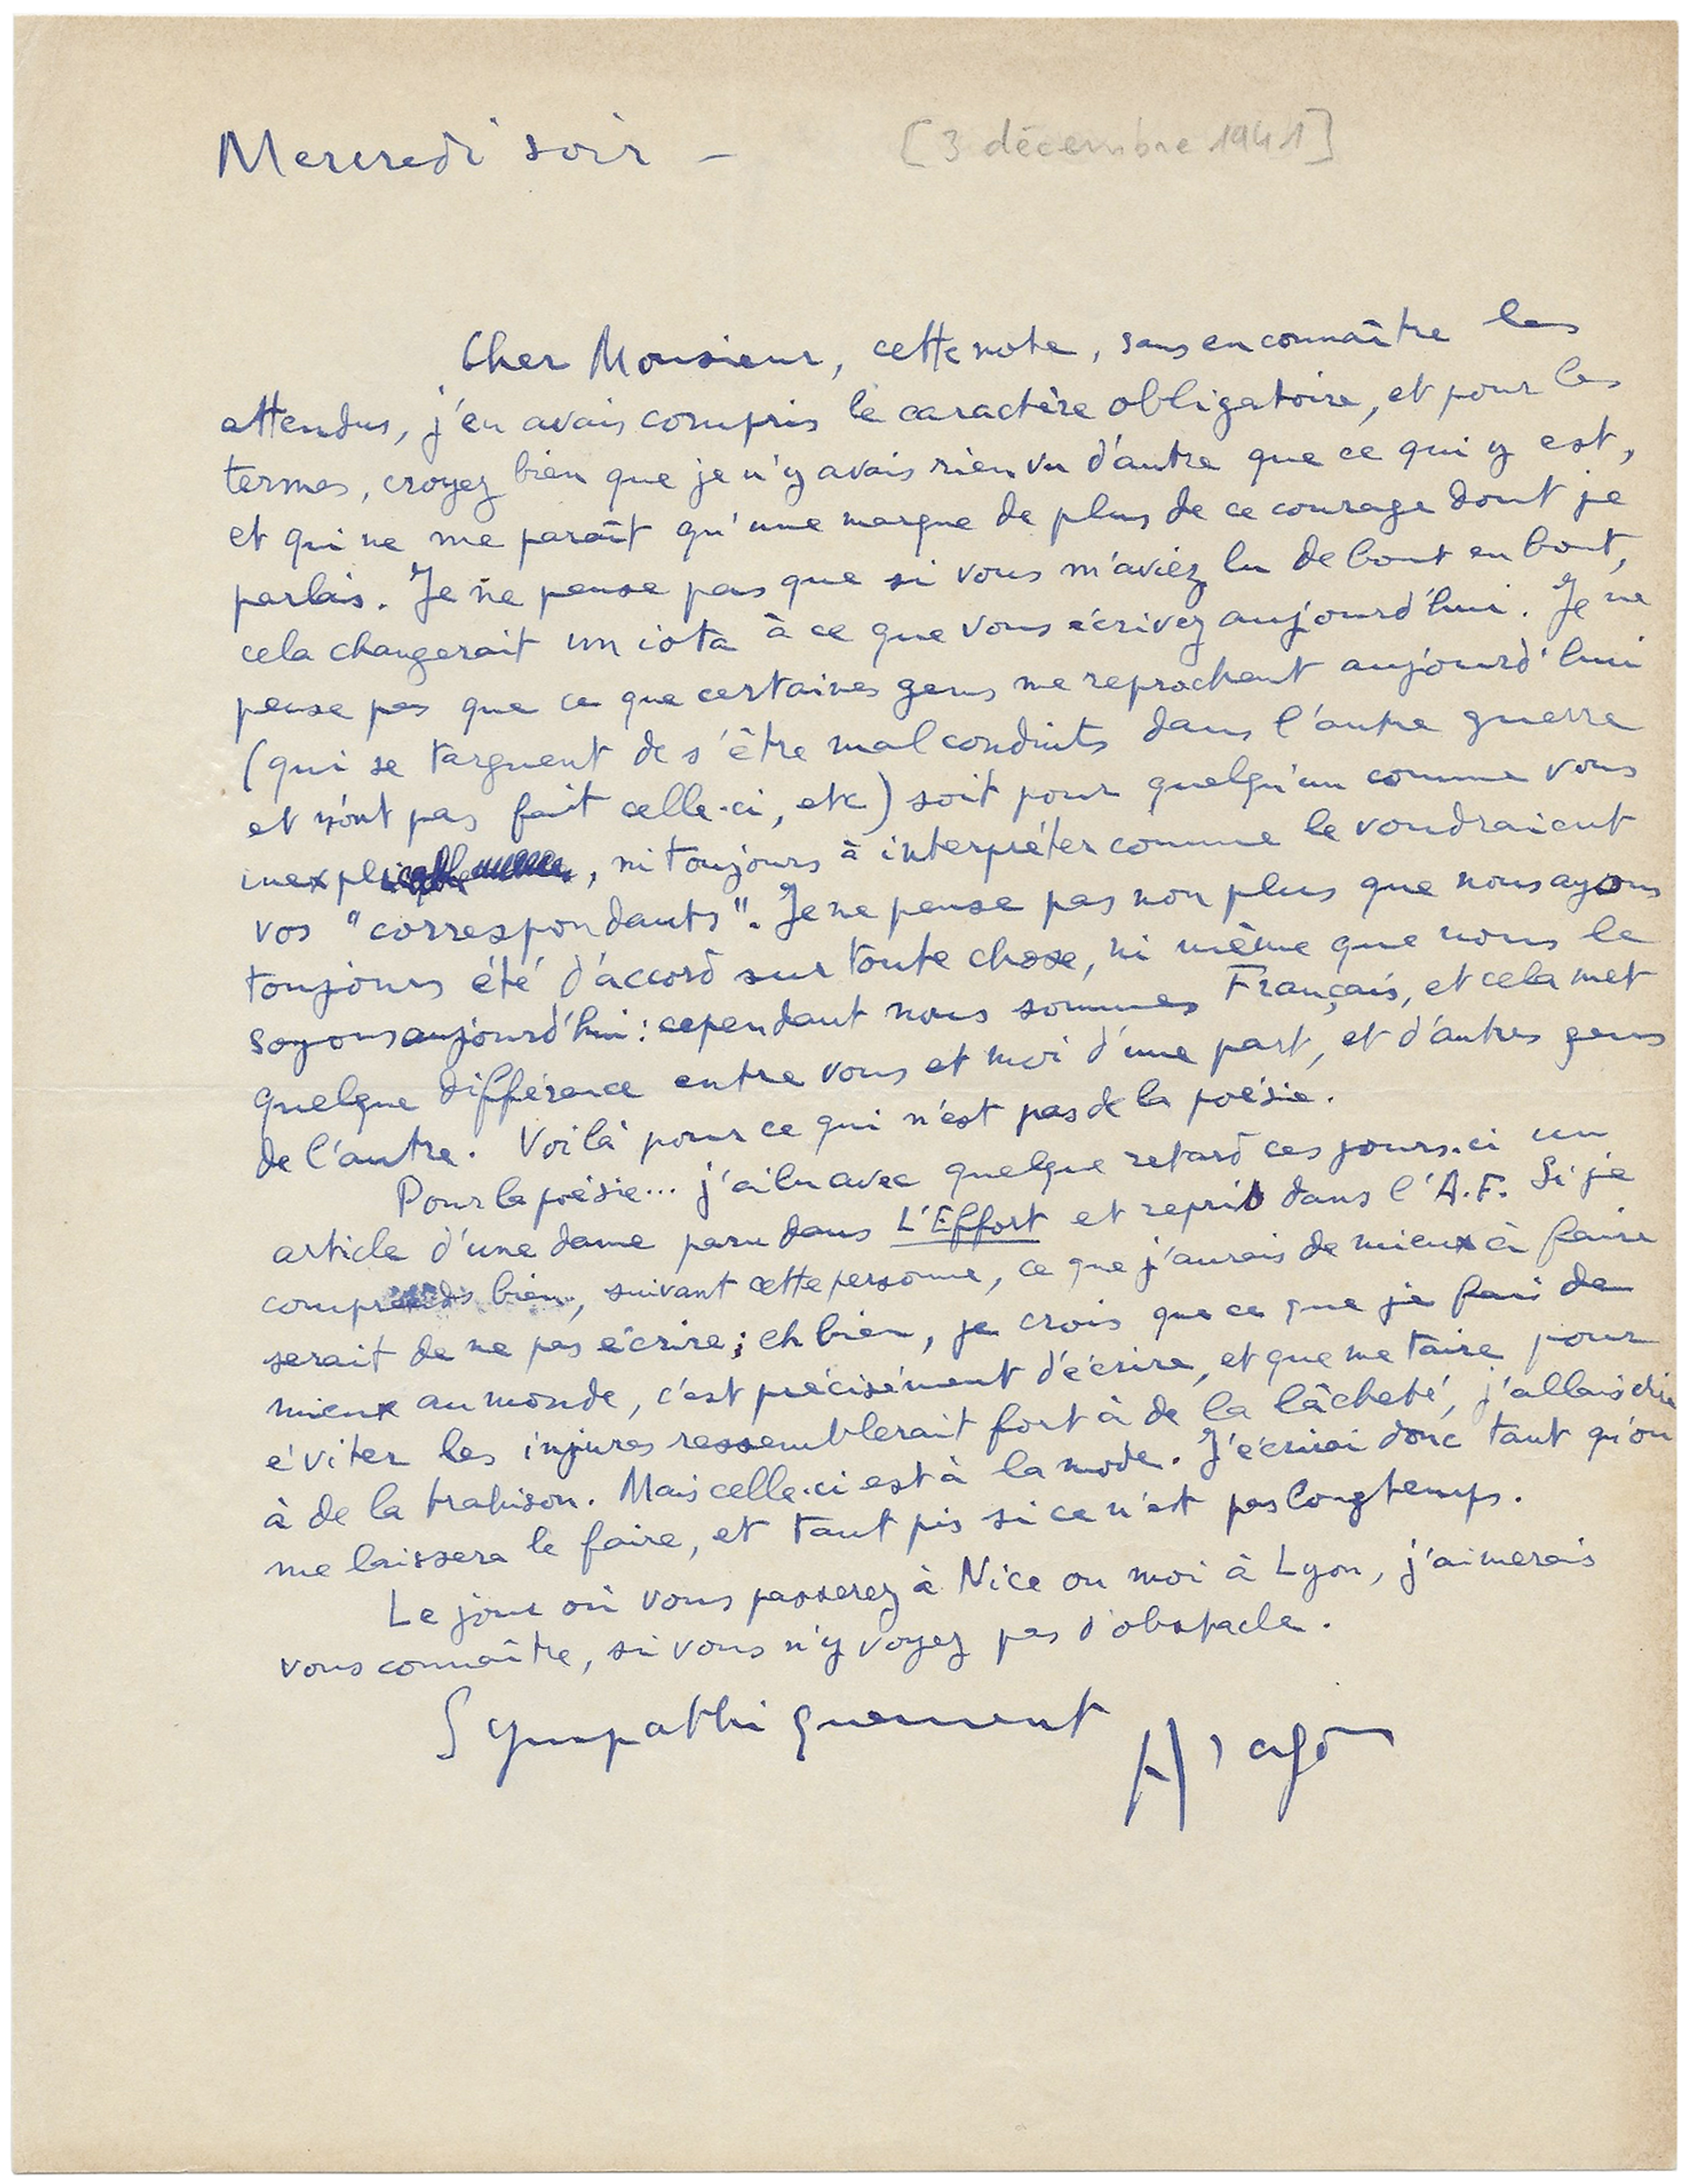 Mercredi soir –
[3 décembre 1941]
Cher Monsieur, cette note, sans en connaître les
attendus, j'en avais compris le caractère obligatoire, et pour les
termes, croyez bien que je n'y avais rien vu d'autre que ce qui y est,
et qui ne me paraît qu'une marque de plus de ce courage dont je
parlais. Je ne pense pas que si vous m'aviez lu de bout en bout,
cela changerait un iota à ce que vous écrivez aujourd'hui. Je ne
pense pas que ce que certaines gens me reprochent aujourd'hui
(qui se targuent de s'être mal conduits dans l'autre guerre
et n'ont pas fait celle-ci, etc) soit pour quelqu'un comme vous
inexplicable, ni toujours à interpréter comme le voudraient
vos "correspondants". Je ne pense pas non plus que nous ayons
toujours été d'accord sur toute chose, ni même que nous le
soyons aujourd'hui : cependant nous sommes Français, et cela met
quelque différence entre vous et moi d'une part, et d'autres gens
de l'autre. Voilà pour ce qui n'est pas de la poésie.
Pour la poésie... j'ai lu avec quelque retard ces jours-ci un
article d'une dame paru dans L'Effort et repris dans l'A.F. Si je
comprends bien, suivant cette personne, ce que j'aurais de mieux à faire
serait de ne pas écrire ; eh bien, je crois que ce que je fai de
mieux au monde, c'est précisément d'écrire, et que me taire pour
éviter les injures ressemblerait fort à de la lâcheté, j'allais dire
à de la trahison. Mais celle-ci est à la mode. J'écrirai donc tant qu'on
me laissera le faire, et tant pis si ce n'est pas longtemps.
Le jour où vous passerez à Nice ou moi à Lyon, j'aimerais
vous connaître, si vous n'y voyez pas d'obstacle.
Sympathiquement
Aragon